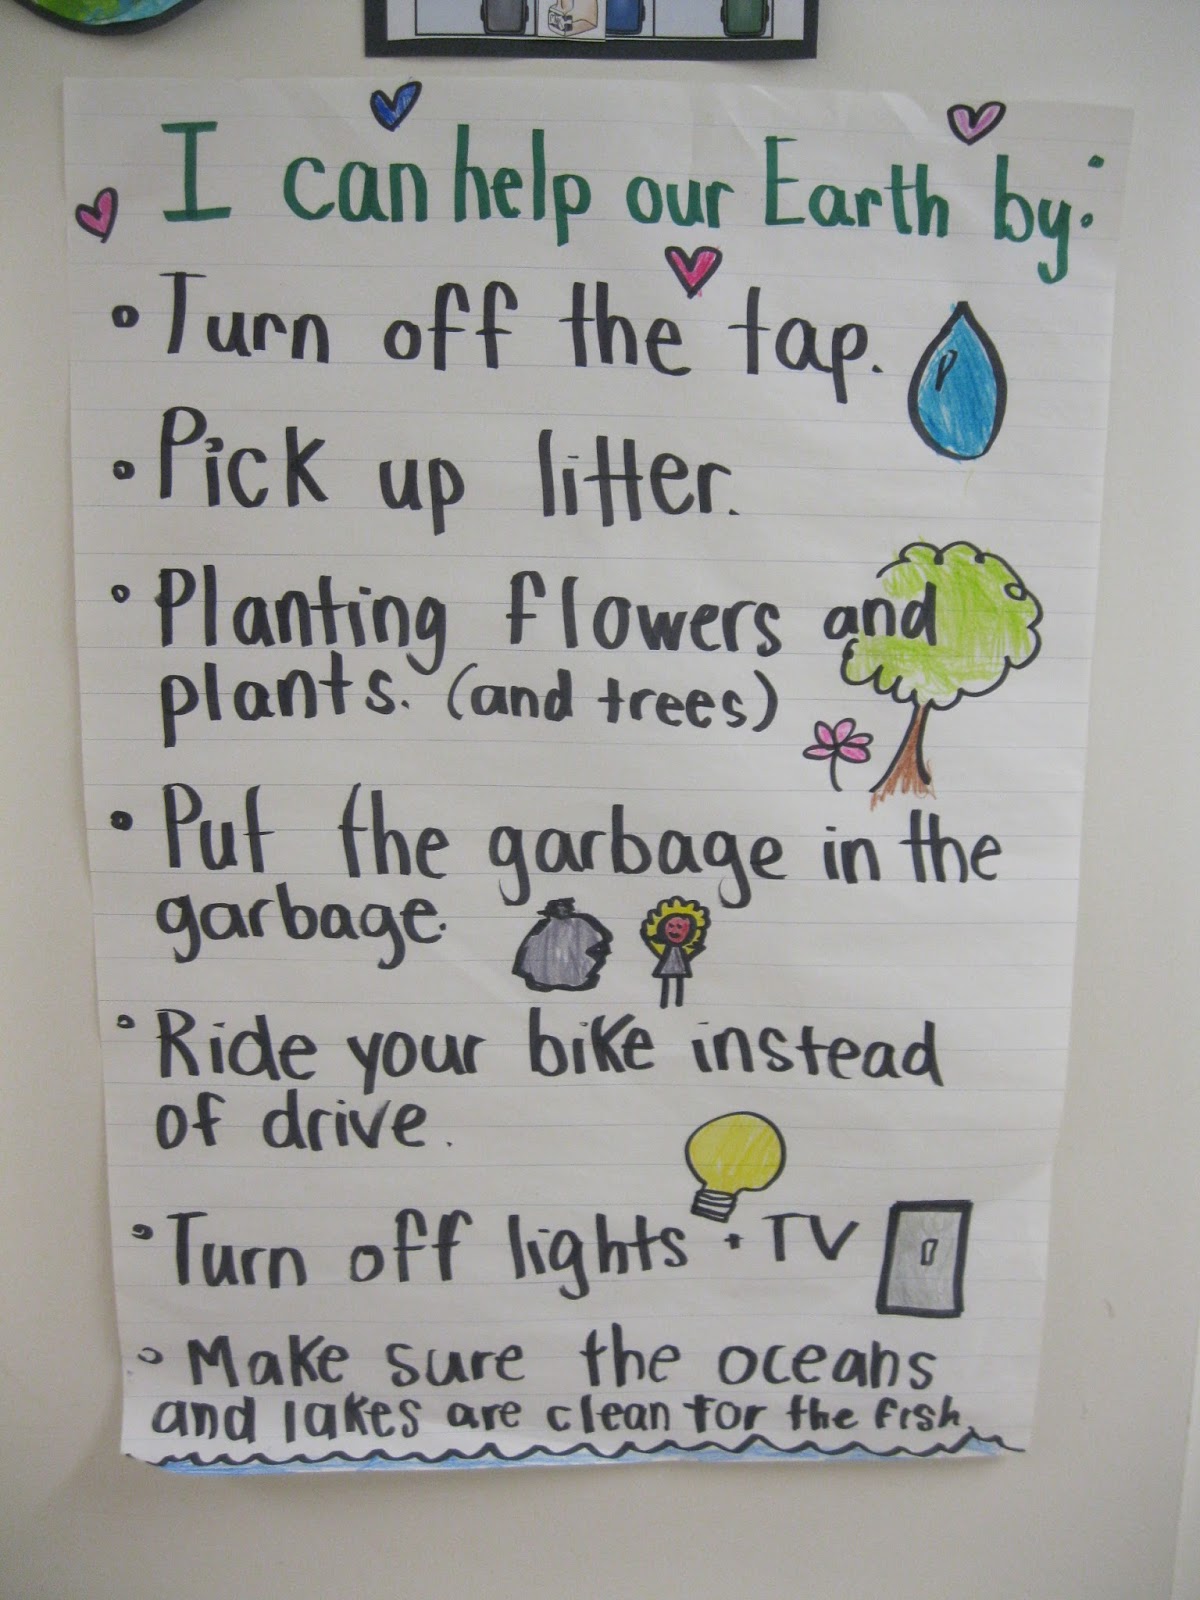 I can help our Earth by:
• Turn off the tap.
• Pick up litter.
• Planting flowers and
plants. (and trees)
• Put the garbage in the
garbage.
• Ride your bike instead
of drive.
• Turn off lights + TV
• Make sure the oceans
and lakes are clean for the fish.